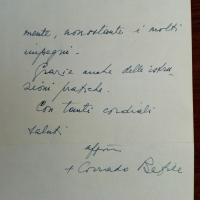 mente, nonostante i molti
impegni.
Grazie anche delle istru-
zioni pratiche.
Con tanti cordiali
saluti
aff.mo
+ Corrado